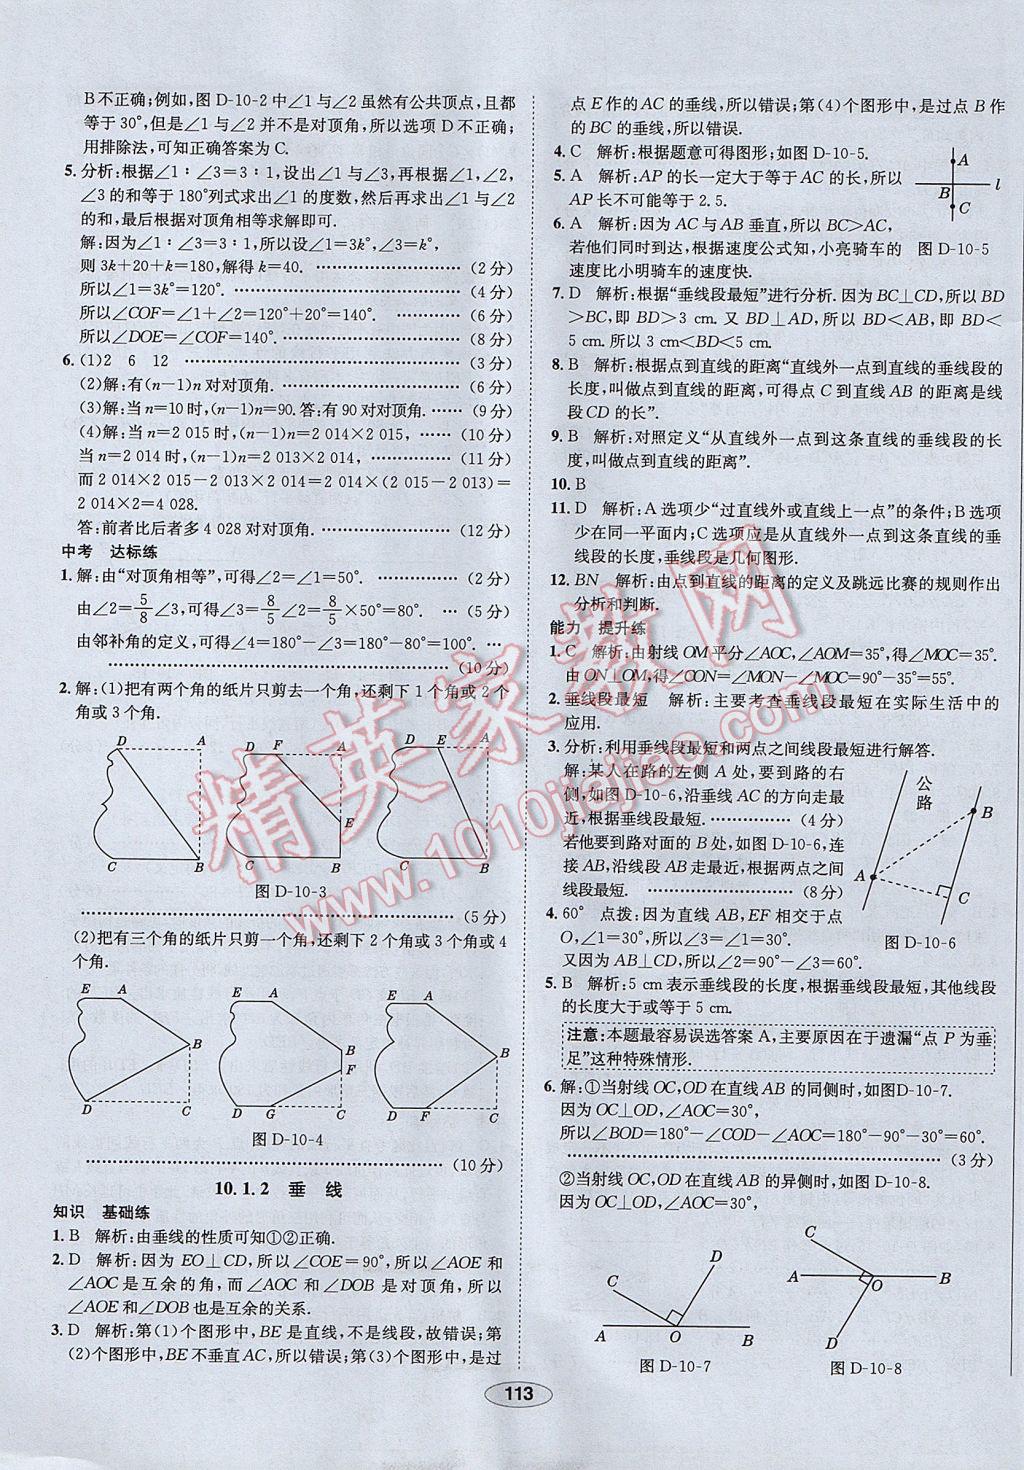 B不正确;例如,图D-10-2中∠1与∠2虽然有公共顶点,且都
等于30°,但是∠1与∠2并不是对顶角,所以选项D不正确;
用排除法,可知正确答案为C.
5.分析:根据∠1∶∠3=3∶1,设出∠1与∠3,再根据∠1,∠2,
∠3的和等于180°列式求出∠1的度数,然后再求出∠1与∠2
的和,最后根据对顶角相等求解即可.
解:因为∠1∶∠3=3∶1,所以设∠1=3k°,∠3=k°,
则3k+20+k=180,解得k=40. ……………………(2分)
所以∠1=3k°=120°. ……………………(4分)
所以∠COF=∠1+∠2=120°+20°=140°. …………(6分)
所以∠DOE=∠COF=140°. ……………………(8分)
6.(1)2 6 12 ……………………(3分)
(2)解:有(n-1)n对对顶角. ……………………(6分)
(3)解:当n=10时,(n-1)n=90.答:有90对对顶角. ……(9分)
(4)解:当n=2 015时,(n-1)n=2 014×2 015, ……(10分)
当n=2 014时,(n-1)n=2 013×2 014, …………(11分)
而2 014×2 015-2 013×2 014=2 014×(2 015-2 013)=
2 014×2=4 028.
答:前者比后者多4 028对对顶角. ……………………(12分)
中考 达标练
1.解:由“对顶角相等”,可得∠2=∠1=50°. …………(2分)
由∠2=5/8∠3,可得∠3=8/5∠2=8/5×50°=80°. …(5分)
由邻补角的定义,可得∠4=180°-∠3=180°-80°=100°. …
……………………(10分)
2.解:(1)把有两个角的纸片只剪去一个角,还剩下1个角或2个
角或3个角.
D A C B
D F A E C B
D E A C B
图D-10-3
……………………(5分)
(2)把有三个角的纸片只剪一个角,还剩下2个角或3个角或4
个角.
E A B D C
E A B F D G C
E A B D F C
图D-10-4
……………………(10分)
10.1.2 垂 线
知识 基础练
1.B 解析:由垂线的性质可知①②正确.
2.D 解析:因为EO⊥CD,所以∠COE=90°,所以∠AOE和
∠AOC是互余的角,而∠AOC和∠DOB是对顶角,所以
∠AOE和∠DOB也是互余的关系.
3.D 解析:第(1)个图形中,BE是直线,不是线段,故错误;第
(2)个图形中,BE不垂直AC,所以错误;第(3)个图形中,是过
点E作的AC的垂线,所以错误;第(4)个图形中,是过点B作
的BC的垂线,所以错误.
4.C 解析:根据题意可得图形;如图D-10-5.
5.A 解析:AP的长一定大于等于AC的长,所以
AP长不可能等于2.5.
A B l C
图D-10-5
6.A 解析:因为AC与AB垂直,所以BC>AC,
若他们同时到达,根据速度公式知,小亮骑车的
速度比小明骑车的速度快.
7.D 解析:根据“垂线段最短”进行分析.因为BC⊥CD,所以BD
>BC,即BD>3 cm.又BD⊥AD,所以BD<AB,即BD<
5 cm.所以3 cm<BD<5 cm.
8.B 解析:根据点到直线的距离“直线外一点到直线的垂线段的
长度,叫做点到直线的距离,可得点C到直线AB的距离是线
段CD的长”.
9.B 解析:对照定义“从直线外一点到这条直线的垂线段的长
度,叫做点到直线的距离”.
10.B
11.D 解析:A选项少“过直线外或直线上一点”的条件;B选项
少在同一平面内;C选项应是从直线外一点到这条直线的垂
线段的长度,垂线段是几何图形.
12.BN 解析:由点到直线的距离的定义及跳远比赛的规则作出
分析和判断.
能力 提升练
1.C 解析:由射线OM平分∠AOC,∠AOM=35°,得∠MOC=35°.
由ON⊥OM,得∠CON=∠MON-∠MOC=90°-35°=55°.
2.垂线段最短 解析:主要考查垂线段最短在实际生活中的
应用.
3.分析:利用垂线段最短和两点之间线段最短进行解答.
解:某人在路的左侧A处,要到路的右
侧,如图D-10-6,沿垂线AC的方向走最
近,根据垂线段最短. ……………(4分)
若他要到路对面的B处,如图D-10-6,连
接AB,沿线段AB走最近,根据两点之间
线段最短. ……………………(8分)
公路 A B C
图D-10-6
4.60° 点拨:因为直线AB,EF相交于点
O,∠1=30°,所以∠3=∠1=30°.
又因为AB⊥CD,所以∠2=90°-∠3=60°.
5.B 解析:5 cm表示垂线段的长度,根据垂线段最短,其他线段
的长度大于或等于5 cm.
注意:本题最容易误选答案A,主要原因在于遗漏“点P为垂
足”这种特殊情形.
6.解:①当射线OC,OD在直线AB的同侧时,如图D-10-7.
因为OC⊥OD,∠AOC=30°,
所以∠BOD=180°-∠COD-∠AOC=180°-90°-30°=60°.
……………………(3分)
②当射线OC,OD在直线AB的异侧时,如图D-10-8.
因为OC⊥OD,∠AOC=30°,
C D A O B
图D-10-7
C A O B D
图D-10-8
113
精英家教网
www.1010jiajiao.com